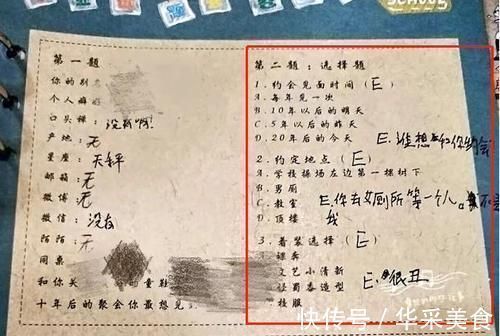 SCHOOL
第一题
你的别
个人癖
口头禅：没有啊！
产地：无
星座：天秤
邮箱：无
微博：无
微信：没有
陌陌：无
同桌
和你关 的童鞋
十年后的聚会你最想见
第二题：选择题
1.约会见面时间（E）
A.每年见一次
B.10年以后的明天
C.5年以后的昨天
D.20年后的今天 E.谁想
2.约定地点（E）
A.学校操场左边第一棵树下
B.男厕
C.教室 E.你去女厕所第一个人。
D.顶楼 我
3.着装选择（E）
裸奔
文艺小清新 E.很丑
怪蜀黍造型
校服
快传号／华采美食